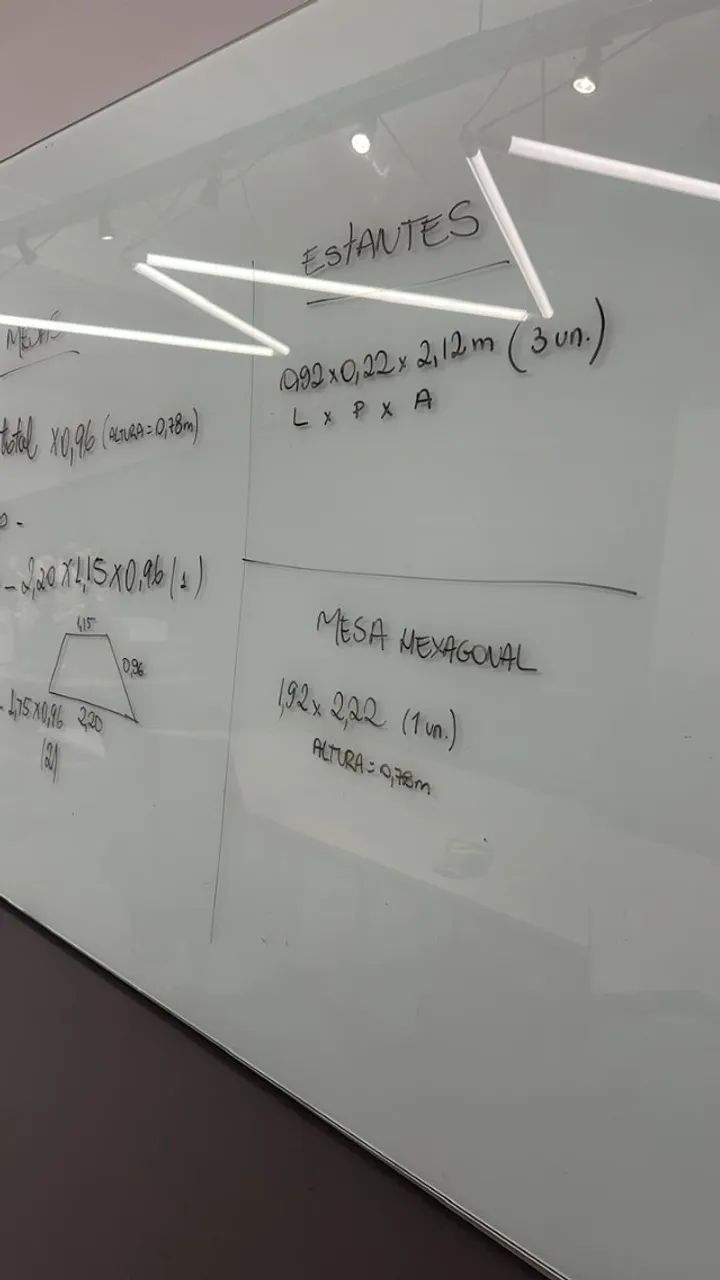 total x0,96 (ALTURA = 0,78m)
- 2,20 x 1,15 x 0,96 (1)
1,15
0,96
2,20
- 1,75 x 0,96
(2)
EStANTES
0,92 x 0,22 x 2,12m (3 un.)
L x P x A
MESA HEXAGONAL
1,92 x 2,22 (1 un.)
ALTURA = 0,78m